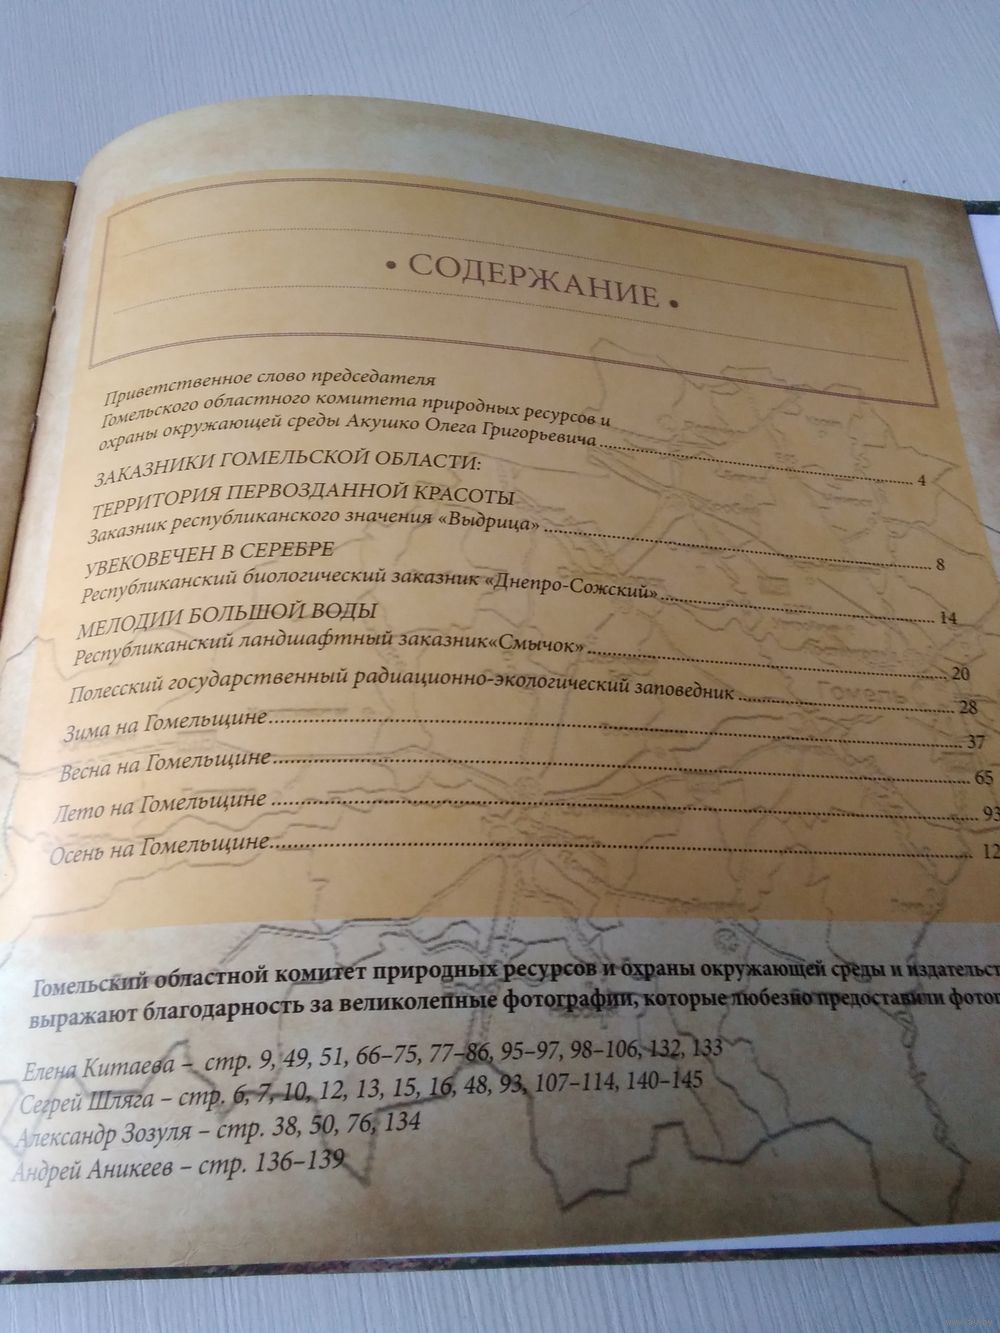 • СОДЕРЖАНИЕ •
Приветственное слово председателя
Гомельского областного комитета природных ресурсов и
охраны окружающей среды Акушко Олега Григорьевича 4
ЗАКАЗНИКИ ГОМЕЛЬСКОЙ ОБЛАСТИ:
ТЕРРИТОРИЯ ПЕРВОЗДАННОЙ КРАСОТЫ
Заказник республиканского значения «Выдрица» 8
УВЕКОВЕЧЕН В СЕРЕБРЕ
Республиканский биологический заказник «Днепро-Сожский» 14
МЕЛОДИИ БОЛЬШОЙ ВОДЫ
Республиканский ландшафтный заказник«Смычок» 20
Полесский государственный радиационно-экологический заповедник 28
Зима на Гомельщине 37
Весна на Гомельщине 65
Лето на Гомельщине 93
Осень на Гомельщине 12
Гомель
Гомельский областной комитет природных ресурсов и охраны окружающей среды и издательст
выражают благодарность за великолепные фотографии, которые любезно предоставили фотог
Елена Китаева – стр. 9, 49, 51, 66–75, 77–86, 95–97, 98–106, 132, 133
Сегрей Шляга – стр. 6, 7, 10, 12, 13, 15, 16, 48, 93, 107–114, 140–145
Александр Зозуля – стр. 38, 50, 76, 134
Андрей Аникеев – стр. 136–139